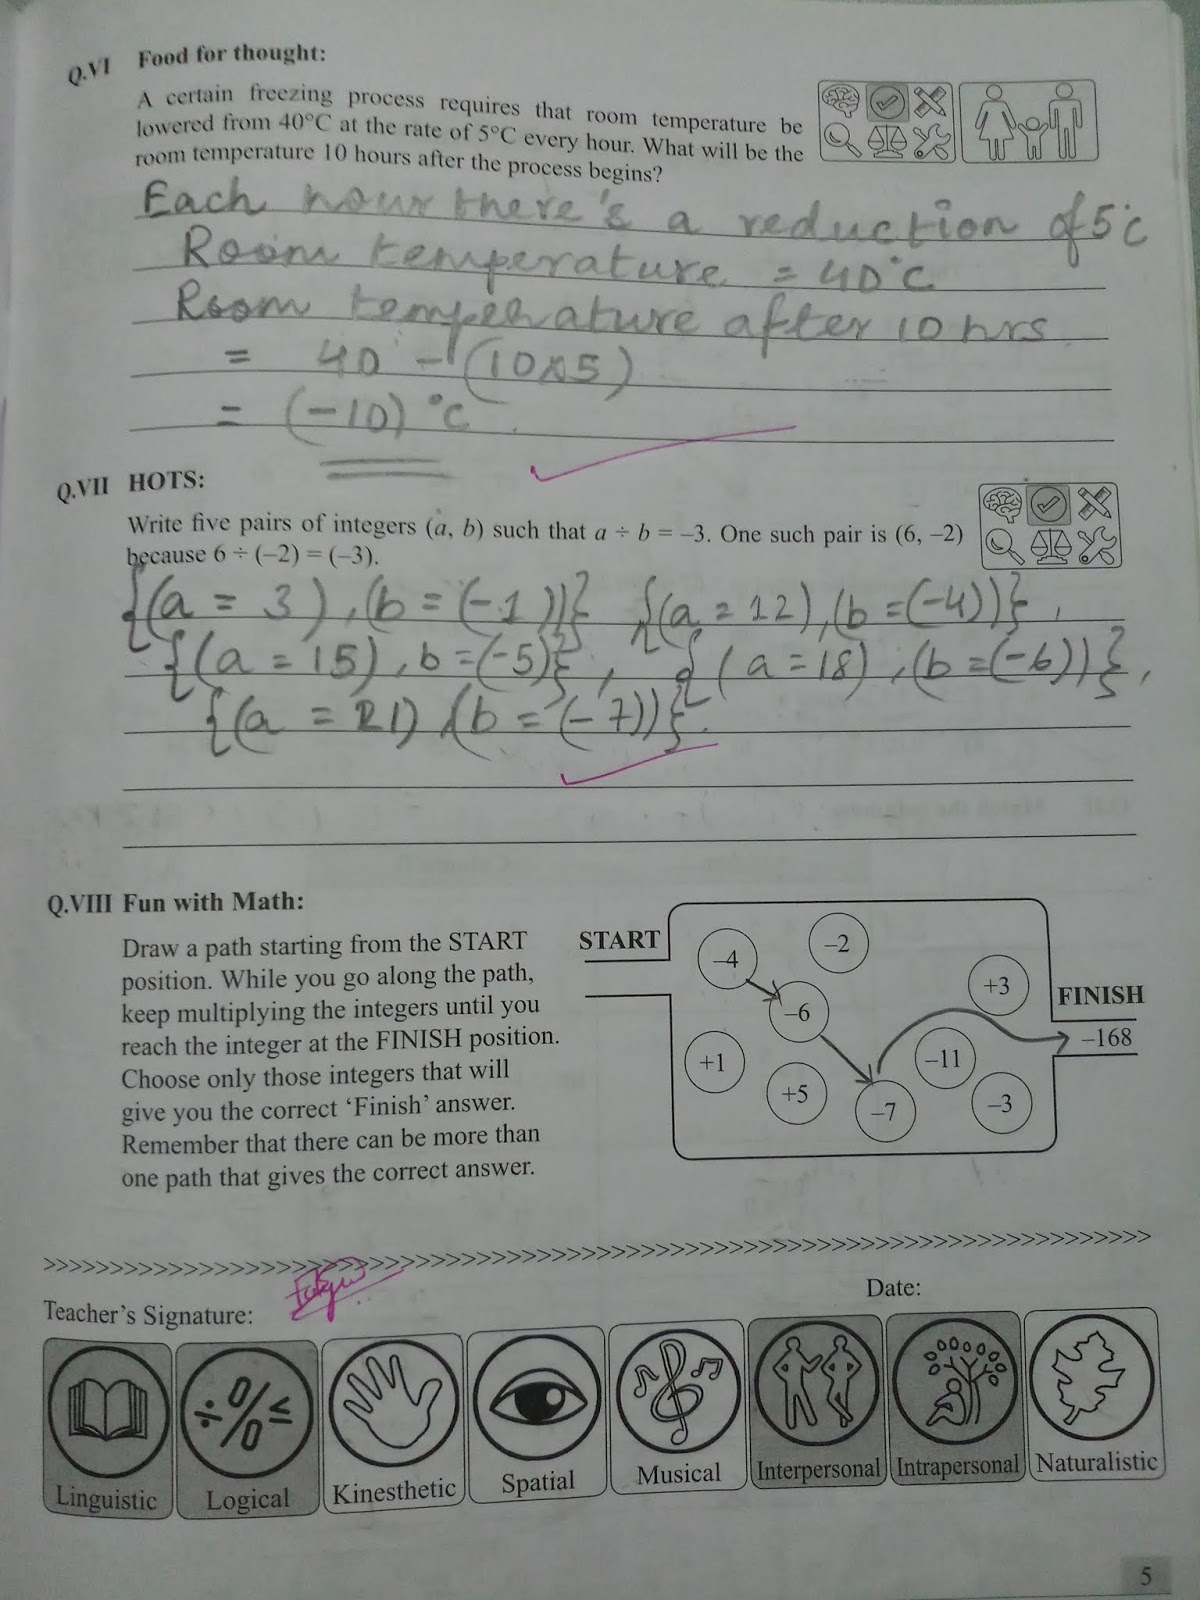 Q.VI Food for thought:
A certain freezing process requires that room temperature be
lowered from 40°C at the rate of 5°C every hour. What will be the
room temperature 10 hours after the process begins?
Each hour there's a reduction of 5°C
Room temperature = 40°C
Room temperature after 10 hrs
= 40 - (10×5)
= (-10) °C.
Q.VII HOTS:
Write five pairs of integers (a, b) such that a ÷ b = –3. One such pair is (6, –2)
because 6 ÷ (–2) = (–3).
{(a = 3), (b = (-1))} {(a = 12), (b = (-4))},
{(a = 15), b = (-5)}, {(a = 18), (b = (-6))},
{(a = 21) (b = (-7))}.
Q.VIII Fun with Math:
Draw a path starting from the START
position. While you go along the path,
keep multiplying the integers until you
reach the integer at the FINISH position.
Choose only those integers that will
give you the correct ‘Finish’ answer.
Remember that there can be more than
one path that gives the correct answer.
START
–4
–2
+3
–6
FINISH
–168
+1
–11
+5
–7
–3
Teacher’s Signature:
Date:
Linguistic Logical Kinesthetic Spatial Musical Interpersonal Intrapersonal Naturalistic
5